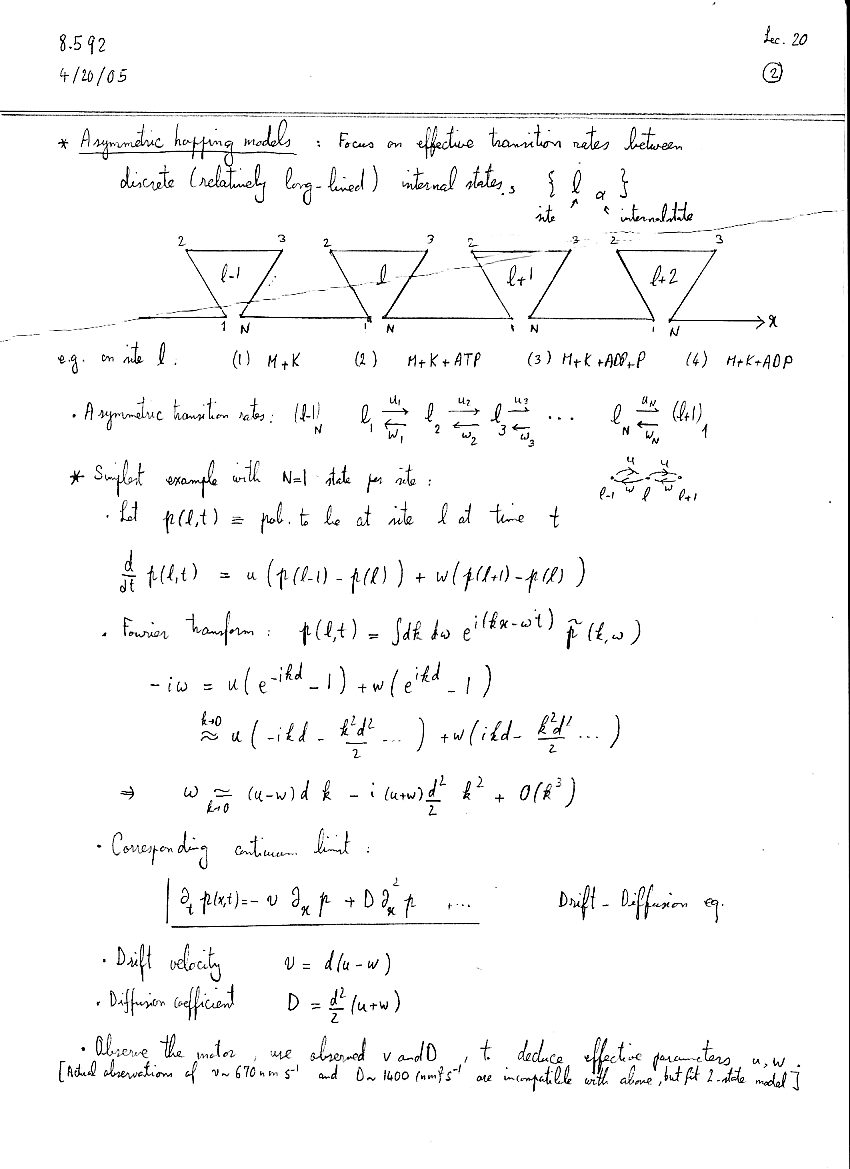 8.592 Lec. 20
4/20/05 ②
* Asymmetric hopping models : Focus on effective transition rates between
discrete (relatively long-lined) internal states,s { l α }
site internal state
2 3 2 3 2 3 2 3
l-1 l l+1 l+2
1 N 1 N 1 N 1 N x
e.g. on site l. (1) M+K (2) M+K+ATP (3) M+K+ADP+P (4) M+K+ADP
· Asymmetric transition rates: (l-1)_N l_1 ⇄ l_2 ⇄ l_3 ⇄ ... l_N ⇄ (l+1)_1
u_1 u_2 u_3 u_N
w_1 w_2 w_3 w_N
* Simplest example with N=1 state per site :
u u
w w
l-1 l l+1
· Let p(l,t) ≡ pob. to be at site l at time t
d/dt p(l,t) = u (p(l-1) - p(l)) + w (p(l+1) - p(l))
· Fourier transform : p(l,t) = ∫dk dω e^{i(kx-ωt)} p̃(k,ω)
-iω = u(e^{-ikd} - 1) + w(e^{ikd} - 1)
≈ (k→0) u(-ikd - k²d²/2 ...) + w(ikd - k²d²/2 ...)
⇒ ω ≃ (k→0) (u-w)d k - i(u+w) d²/2 k² + O(k³)
· Corresponding continuum limit :
∂_t p(x,t) = - v ∂_x p + D ∂_x² p .... Drift - Diffusion eq.
· Drift velocity v = d(u-w)
· Diffusion coefficient D = d²/2 (u+w)
· Observe the motor, use observed v and D, to deduce effective parameters u,w.
[Actual observations of v ~ 670 nm s⁻¹ and D ~ 1400 (nm)² s⁻¹ are incompatible with above, but fit 2-state model]